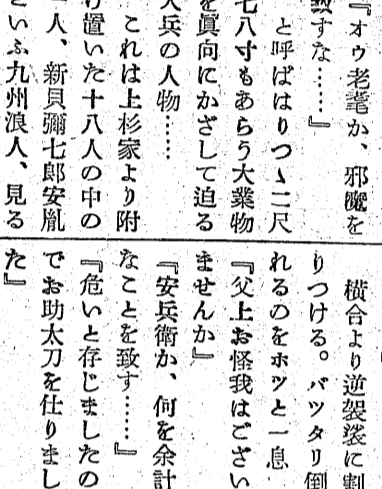 『オゥ老耄か、邪魔を
致すな……』
と呼ばはりつゝ二尺
七八寸もあらう大業物
を眞向にかざして迫る
大兵の人物……
これは上杉家より附
け置いた十八人の中の
一人、新貝彌七郎安胤
といふ九州浪人、見る
横合より逆袈裟に割
りつける。バツタリ倒
れるのをホツと一息
『父上お怪我はござい
ませんか』
『安兵衛か、何を余計
なことを致す……』
『危いと存じましたの
でお助太刀を仕りまし
た』